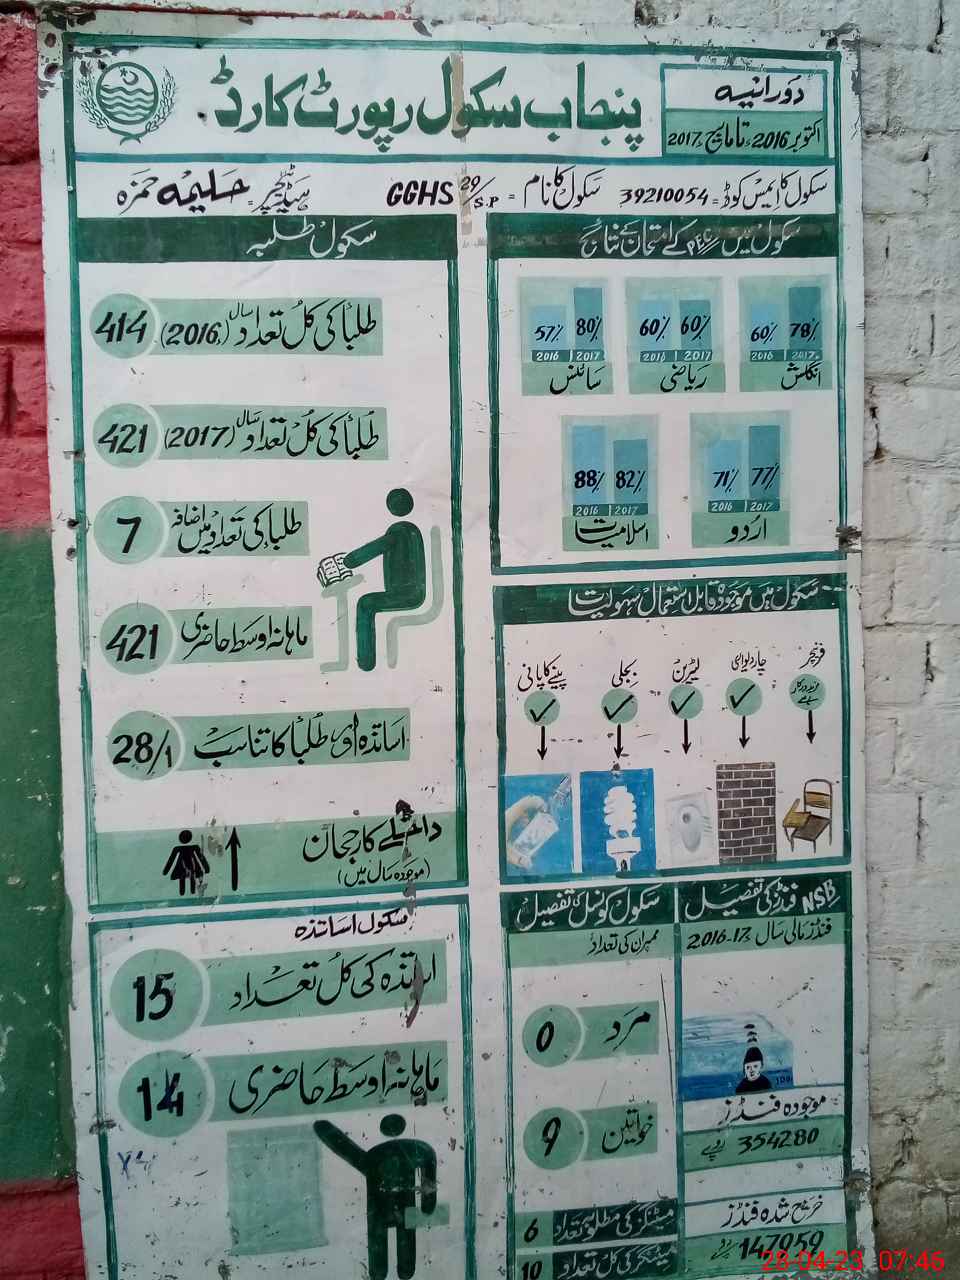 پنجاب سکول رپورٹ کارڈ
دورانیہ
اکتوبر 2016ء تا مارچ 2017ء
سکول کا ایمس کوڈ = 39210054
سکول کا نام = GGHS 29/S.P
ہیڈ ٹیچر = حلیمہ حمزہ
سکول طلبہ
طلبا کی کل تعداد سال (2016ء) 414
طلبا کی کل تعداد سال (2017) 421
طلبا کی تعداد میں اضافہ 7
ماہانہ اوسط حاضری 421
اساتذہ اور طلبا کا تناسب 28/1
داخلے کا رجحان
(موجودہ سال میں)
سکول اساتذہ
اساتذہ کی کل تعداد 15
ماہانہ اوسط حاضری 14
سکول میں PEC کے امتحان کے نتائج
57% 80%
2016 2017
سائنس
60% 60%
2016 2017
ریاضی
60% 78%
2016 2017ء
انگلش
88% 82%
2016 2017
اسلامیت
71% 77%
2016 2017
اردو
سکول میں موجودہ قابل استعمال سہولیات
فرنیچر
مزید درکار ہے
چاردیواری
لیٹرین
بجلی
پینے کا پانی
سکول کونسل کی تفصیل
ممبران کی تعداد
مرد 0
خواتین 9
میٹنگز کی مطلوبہ تعداد 6
میٹنگز کی کل تعداد 10
NSB فنڈز کی تفصیل
فنڈز مالی سال 2016-17ء
موجودہ فنڈز
354280 روپے
خرچ شدہ فنڈز
147059 روپے
28-04-23 07:46